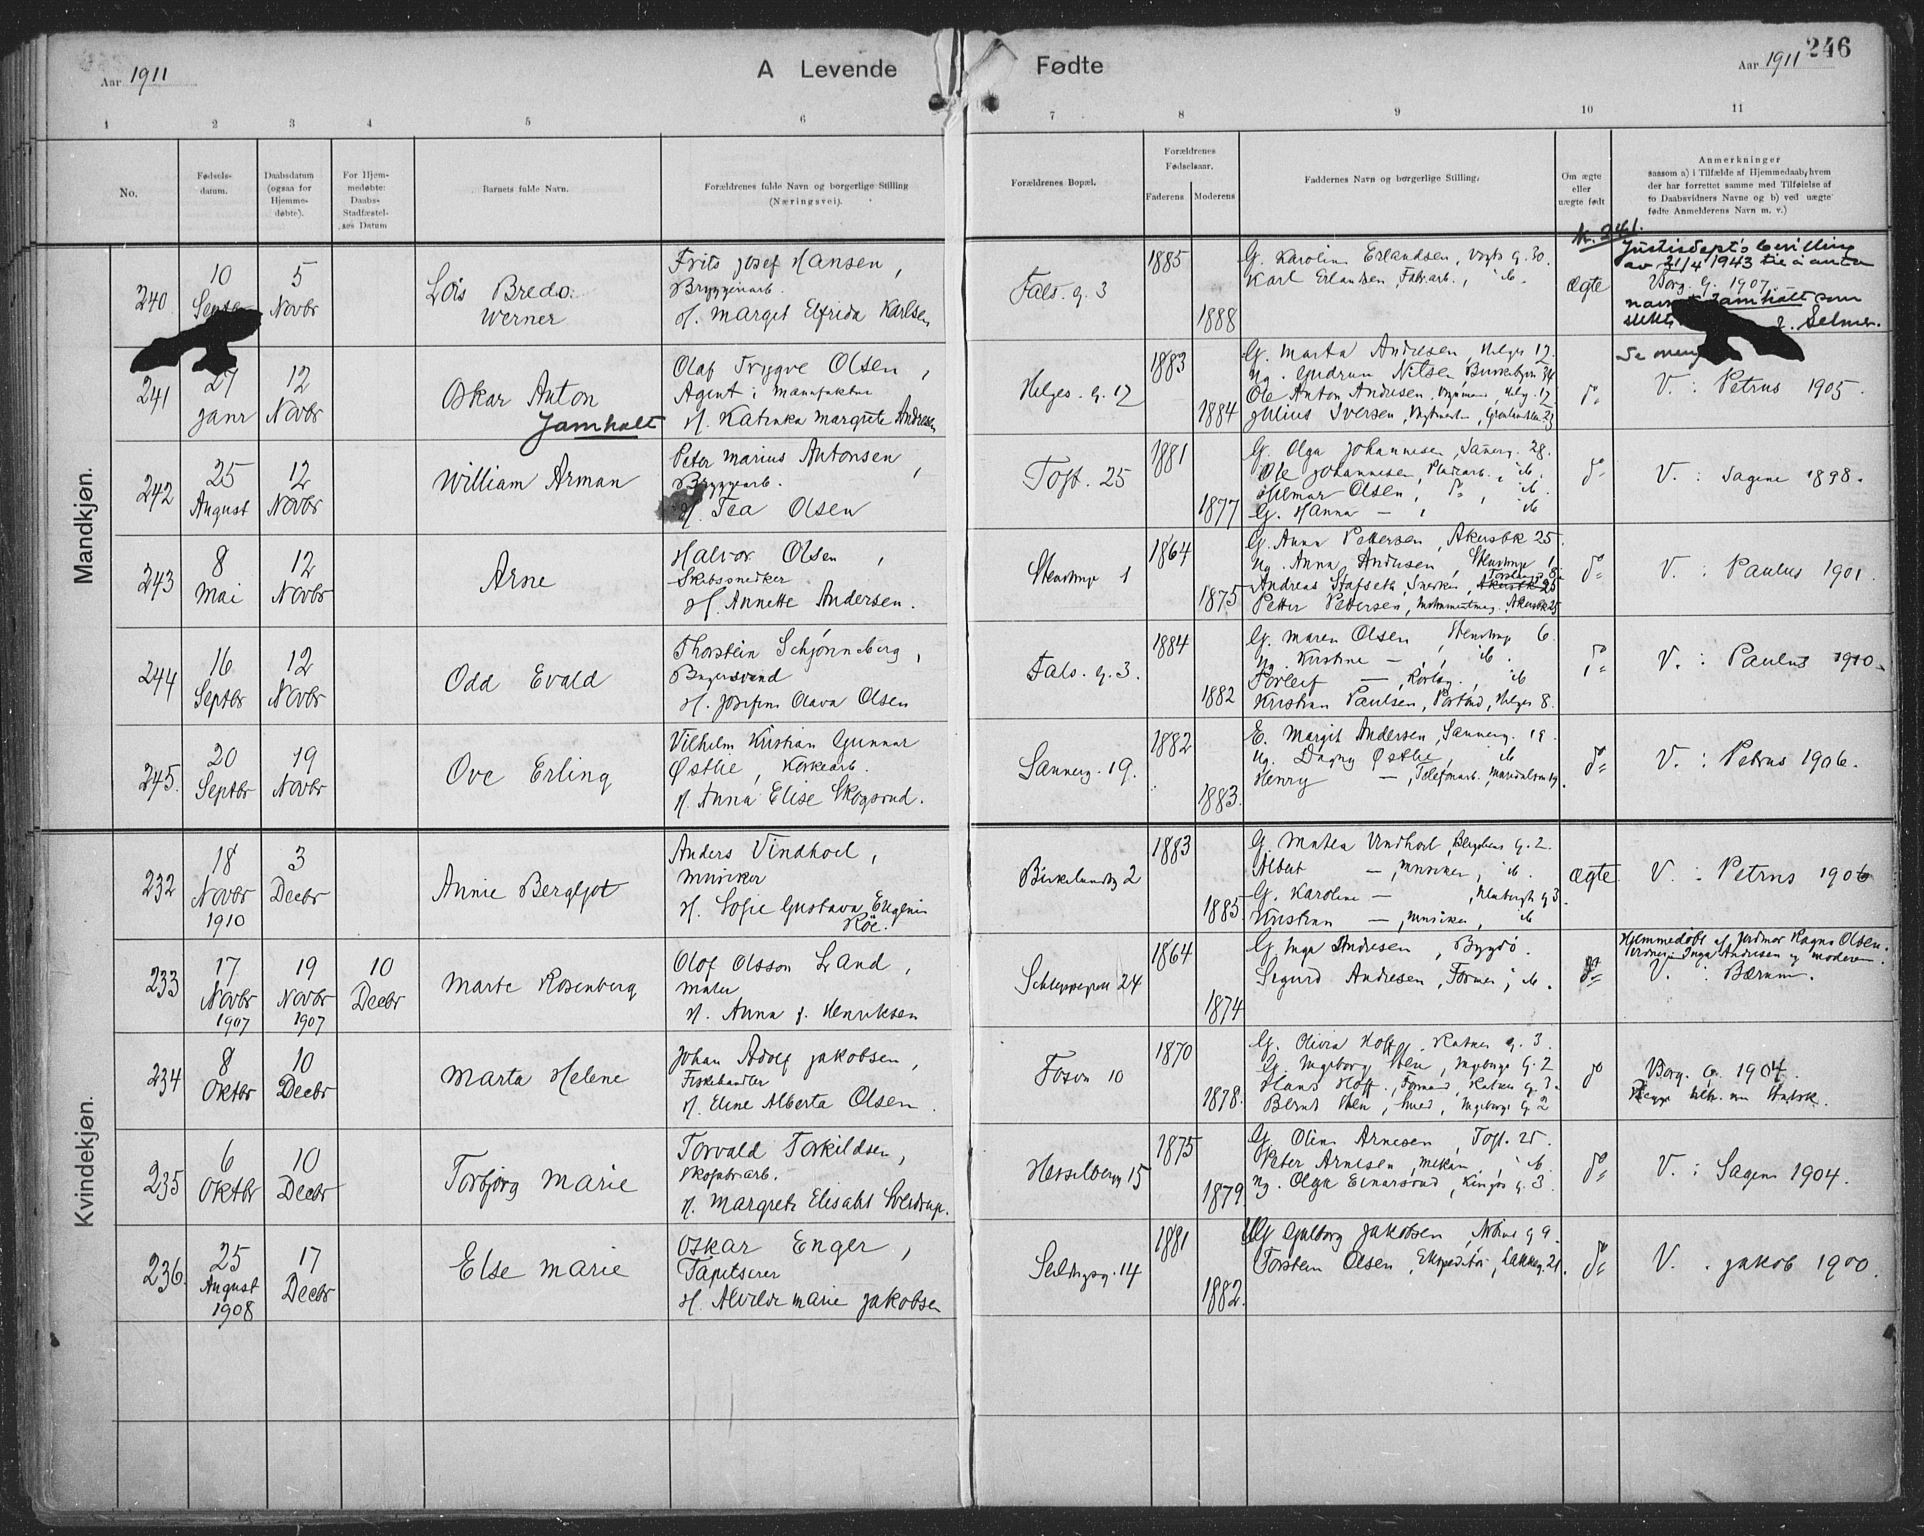 Aar 1911
A Levende Fødte
Aar 1911
246
1 2 3 4 5 6 7 8 9 10 11
No.
Fødsels-
datum.
Daabsdatum
(ogsaa for
Hjemme-
døbte).
For Hjem-
medøbte:
Daabs-
Stadfæstel-
ses Datum
Barnets fulde Navn.
Forældrenes fulde Navn og borgerlige Stilling
(Næringsvei).
Forældrenes Bopæl.
Forældrenes
Fødselsaar.
Faderens Moderens
Faddernes Navn og borgerlige Stilling.
Om ægte
eller
uægte født
Anmerkninger
saasom a) i Tilfælde af Hjemmedaab, hvem
der har forrettet samme med Tilføielse af
to Daabsvidners Navne og b) ved uægte
fødte Anmelderens Navn m. v.)
Mandkjøn.
240
10
5
Novbr
Bredo
Werner
Frits Josef Hansen,
Bryggeriarb.
H. Margit Elfrida Karlsen
Fals. g. 3
1885
1888
G. Karoline Erlandsen, Vogts g. 30.
Karl Erlandsen, Fabrarb., ib.
ægte
Nr. 241.
Justisdept's bevilling
av 21/4 1943 til å anta
Borg. g. 1907.
navnet Jamholt som
Selmer.
241
27
Janr
12
Novbr
Oskar Anton
Jamholt
Olaf Trygve Olsen,
Agent i Manufaktur
H. Katinka Margrete Andresen
Helges. g. 12
1883
1884
G. Marta Andresen, Helges 12.
Ug. Gudrun Nilsen
Ole Anton Andresen,
Julius Iversen,
do
Se oven
V. : Petrus 1905.
242
25
August
12
Novbr
William Arman
Peter Marius Antonsen,
Bryggearb.
H. Tea Olsen
Toft. 25
1881
1877
G. Olga Johannesen, Sannerg. 28.
Ole Johannesen, ib.
Hilmar Olsen, do, ib.
G. Hanna — , ib
do
V. : Sagene 1898.
243
8
Mai
12
Novbr
Arne
Halvor Olsen,
Skibssnedker
H. Annette Andersen.
Stenstrup 1
1864
1875
G. Anna Pettersen, Akersbk 25.
Ug. Anna Andersen, Stenstrup 1
Andreas Stafseth, Snedker,
Petter Pettersen, Akersbk 25
do
V. : Paulus 1901.
244
16
Septbr
12
Novbr
Odd Evald
Thorstein Schjønneberg,
Bagersvend
H. Josefine Olava Olsen
Fals. g. 3.
1884
1882
G. Maren Olsen, Stenstrup 6.
Ug. Kristine — , ib.
Torleif — , ib
Kristian Paulsen, Postbud, Helges 8.
do
V. : Paulus 1910.
245.
20
Septbr
19
Novbr
Ove Erling
Vilhelm Kristian Gunnar
Østlie, Korkearb.
H. Anna Elise Skogsrud.
Sannerg. 19.
1882
1883.
E. Margit Andersen, Sannerg. 19.
Ug. Dagny Østlie, ib
Henry — , Telefonarb. Maridalsvn 19.
do
V. : Petrus 1906.
Kvindekjøn.
232
18
Novbr
1910
3
Decbr
Annie Bergljot
Anders Vindhoel,
Musiker
H. Sofie Gustava Eugenie
Røe.
Birkelundsg 2
1883
1885
G. Matea Vindhoel, g. 2.
Albert — , Musiker, ib.
G. Karoline — , g 3.
Kristian — , Musiker, ib
ægte
V. : Petrus 1906
233
17
Novbr
1907
19
Novbr
1907
10
Decbr
Marte Rosenberg
Olof Olsson Land,
Maler
H. Anna J. Henriksen
Schleppegrell 24
1864
1874
G. Inga Andresen, Bygdø
Sigurd Andresen, Former, ib.
do
Hjemmedøbt af Jordmor Ragna Olsen.
Vidner: Inga Andresen og moderen.
V. : Bærum.
234
8
Oktbr
10
Decbr
Marta Helene
Johan Adolf Jakobsen,
Fiskehandler
H. Eline Alberta Olsen.
Fossvn 10
1870
1878.
G. Olivia Hoff, Ratkes g. 3.
G. Ingeborg Sten, Ingeborgs g. 2
Hans Hoff, Formand, Ratkes g. 3.
Bernt Sten, Smed, Ingeborgs g. 2
do
Borg. g. 1904.
235
6
Oktbr
10
Decbr
Torbjørg Marie
Torvald Torkildsen,
Skofabrarb.
H. Margrete Elisabet Sverdrup.
Hesselbergg 15
1875
1879
G. Oline Arnesen, Toft. 25.
Peter Arnesen, Mekan., ib.
Ug. Olga Einarsrud, Kingos g. 3.
do
V. : Sagene 1904.
236.
25
August
1908
17
Decbr
Else Marie
Oskar Enger,
Tapetserer
H. Alvilde Marie Jakobsen
Seildugsg. 14
1881
1882.
Ug Gulborg Jakobsen, g 9.
Torstein Olsen, Ekspeditør, Lakkeg. 21.
do
V. . Jakob 1900.